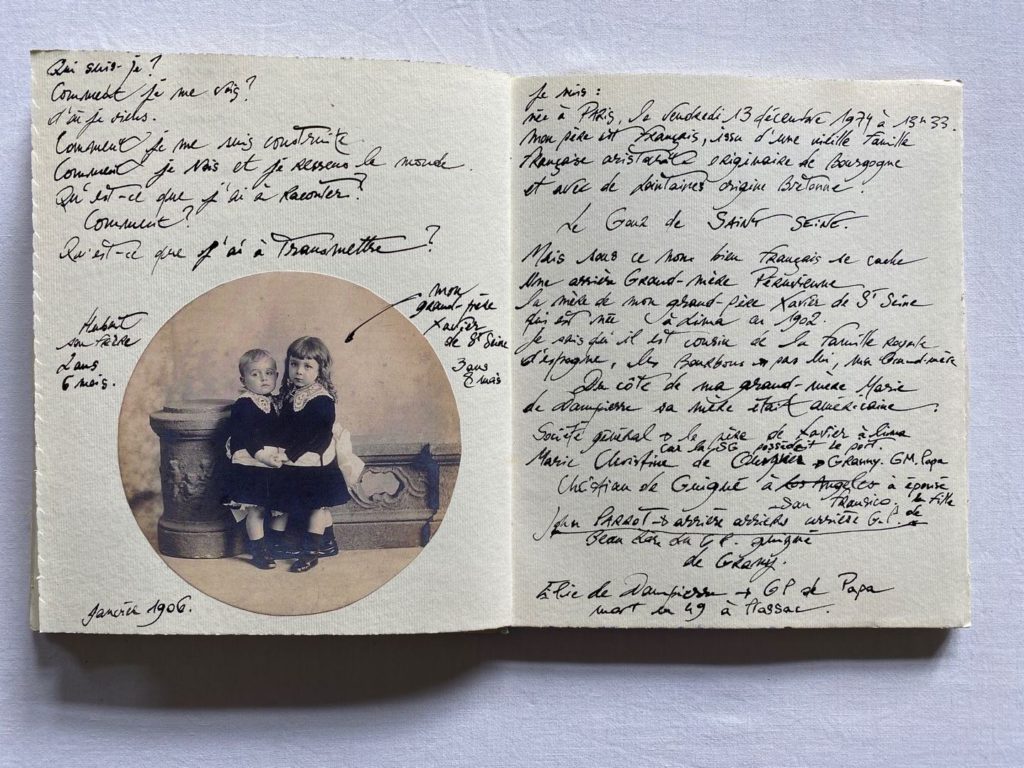 Qui suis-je ?
Comment je me vois ?
d'où je viens.
Comment je me suis construite.
Comment je vois et je ressens le monde.
Qu'est-ce que j'ai à raconter ?
Comment ?
Qu'est-ce que j'ai à Transmettre ?
Hubert
son frère
2 ans
6 mois.
mon
grand-père
Xavier
de St Seine
3 ans
8 mois
Janvier 1906.
Je suis :
née à PARIS, le vendredi 13 décembre 1974 à 13h33.
mon père est Français, issu d'une vieille famille
Française originaire de Bourgogne
et avec de lointaines origine Bretonne.
Le Gouz de SAINT SEINE.
Mais sous ce nom bien Français se cache
Une arrière Grand-mère Péruvienne
la mère de mon grand-père Xavier de St Seine
qui est née à Lima en 1902.
Je sais qu'il est cousin de la famille Royale
d'espagne, les Bourbons → pas lui, ma Grand-mère
Du côté de ma grand-mère Marie
de Dampierre sa mère était américaine.
Société général → le père de Xavier à Lima
car la SG possédait le port
Marie Christine de → Granny. GM. Papa
Christian de Guigné à Los Angeles a épousé
San Francisco la fille
John PARROT → arrière arrière arrière G.P. de
G.P. guigné
de Granny.
Elie de Dampierre → GP de Papa
mort en 49 à Plassac.